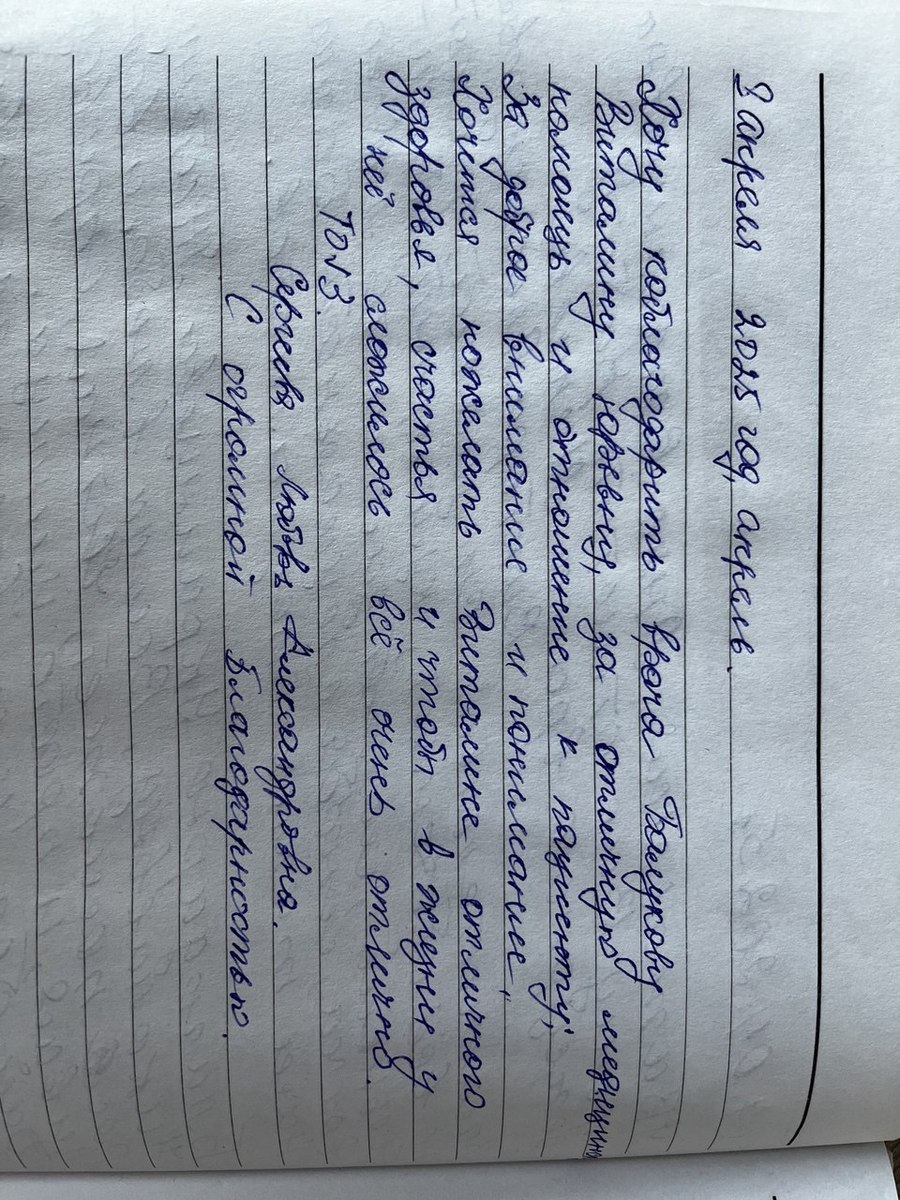 8 апреля 2025 год, апрель.
Хочу поблагодарить врача Балукову
Виталину Юрьевну, за отличную медицинс
помощь и отношение к пациенту,
За доброе внимание и понимание,
Хочется пожелать Виталине отличного
здоровья, счастья и чтобы в жизни у
неё сложилось всё очень отлично.
ТО №3.
Сергеева Любовь Александровна.
С огромной Благодарностью.